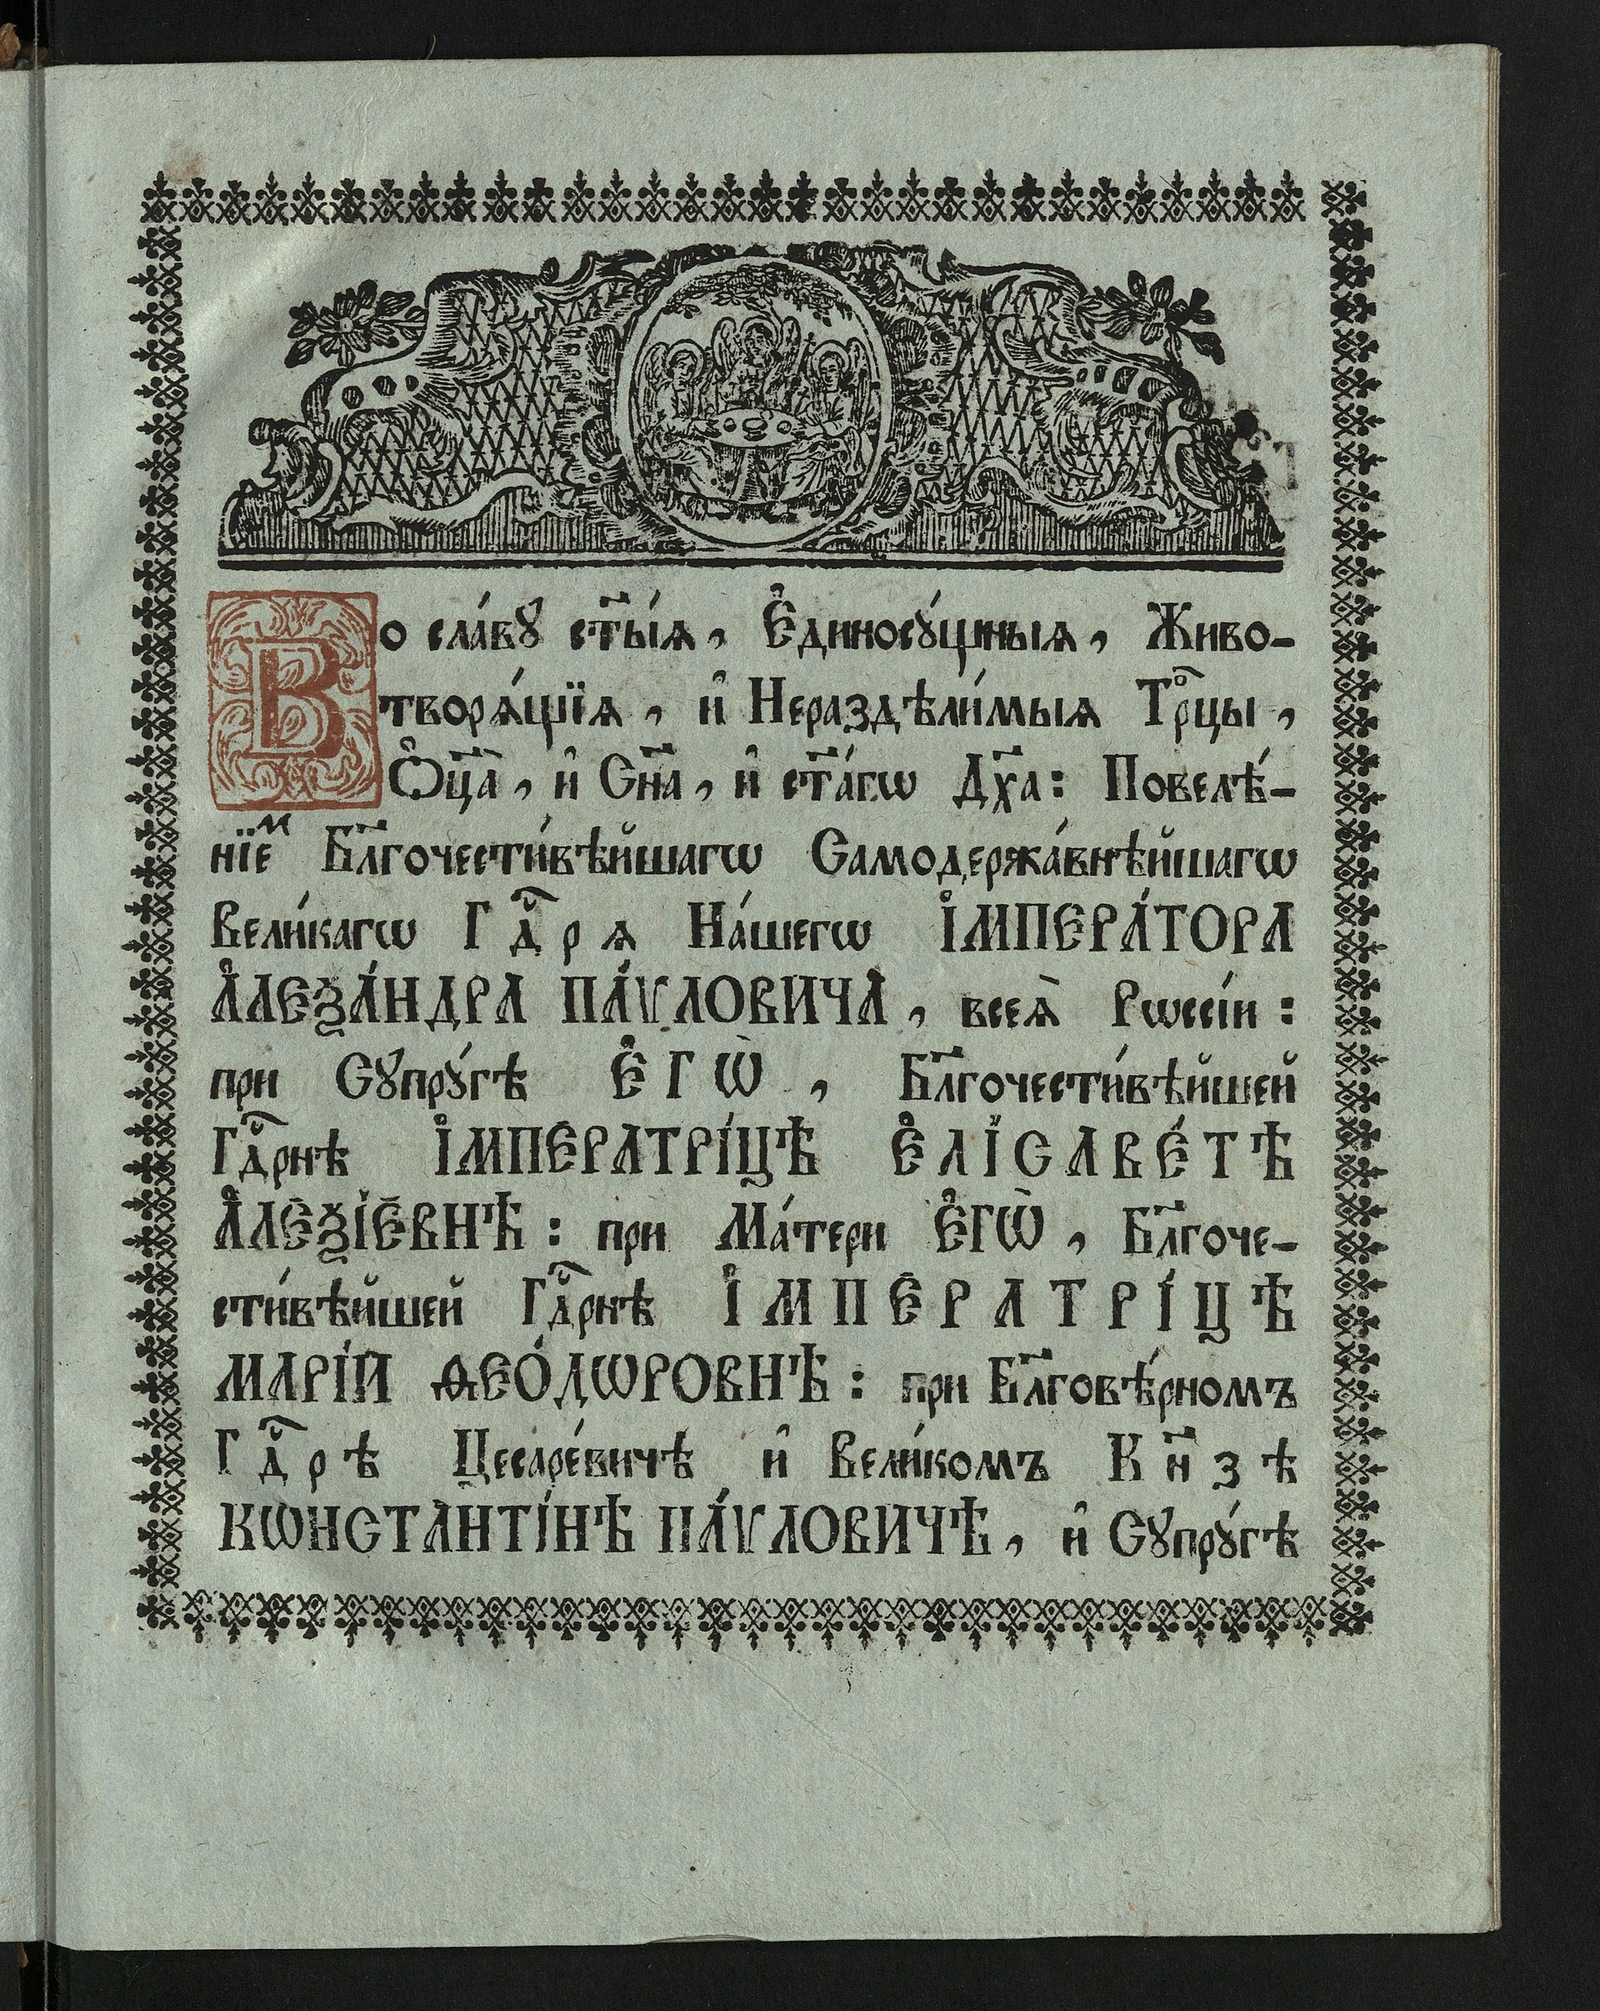 Во сла́вꙋ ст҃ы́ѧ, Є҆диносꙋ́щныѧ, Живо-
творѧ́щїѧ, и҆ Нераздѣли́мыѧ Трⷪ҇цы,
Ѻ҆ц҃а̀, и҆ Сн҃а, и҆ ст҃а́гѡ Дх҃а: Повелѣ́-
нїеⷨ Бл҃гочести́вѣйшагѡ Самодержа́внѣйшагѡ
Вели́кагѡ Гдⷭ҇рѧ На́шегѡ І҆МПЕРА́ТОРА
А҆ЛЕѮА́НДРА ПА́ѴЛОВИЧА, всеѧ̀ Рѡссі́и:
при Сꙋпрꙋ́гѣ Є҆ГѠ̀, Бл҃гочести́вѣйшей
Гдⷭ҇рнѣ І҆МПЕРАТРІ́ЦѢ Є҆ЛІСАВЕ́ТѢ
А҆ЛЕѮІ́ЕВНѢ: при Ма́тери Є҆ГѠ̀, Бл҃гоче-
сти́вѣйшей Гдⷭ҇рнѣ І҆МПЕРАТРІ́ЦѢ
МАРІ́И Ѳ҆ЕО́ДѠРОВНѢ: при Бл҃говѣ́рномъ
Гдⷭ҇рѣ Цесаре́вичѣ и҆ Вели́комъ Кн҃зѣ
КѠНСТАНТІ́НѢ ПА́ѴЛОВИЧѢ, и҆ Сꙋпрꙋ́гѣ